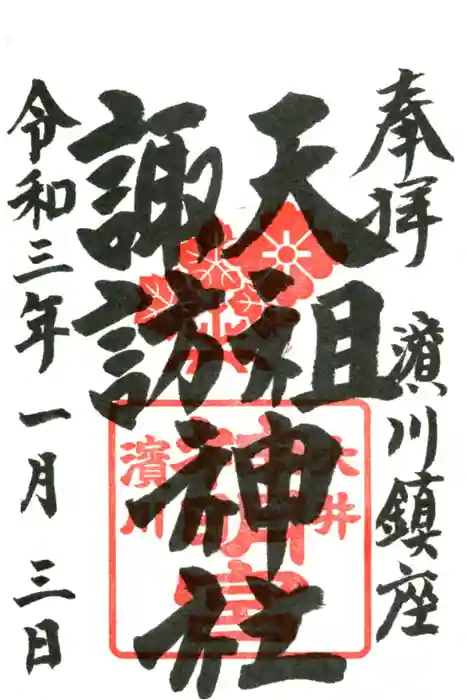 奉拝
濱川鎮座
天祖
諏訪
神社
令和三年一月三日
大井
濱川